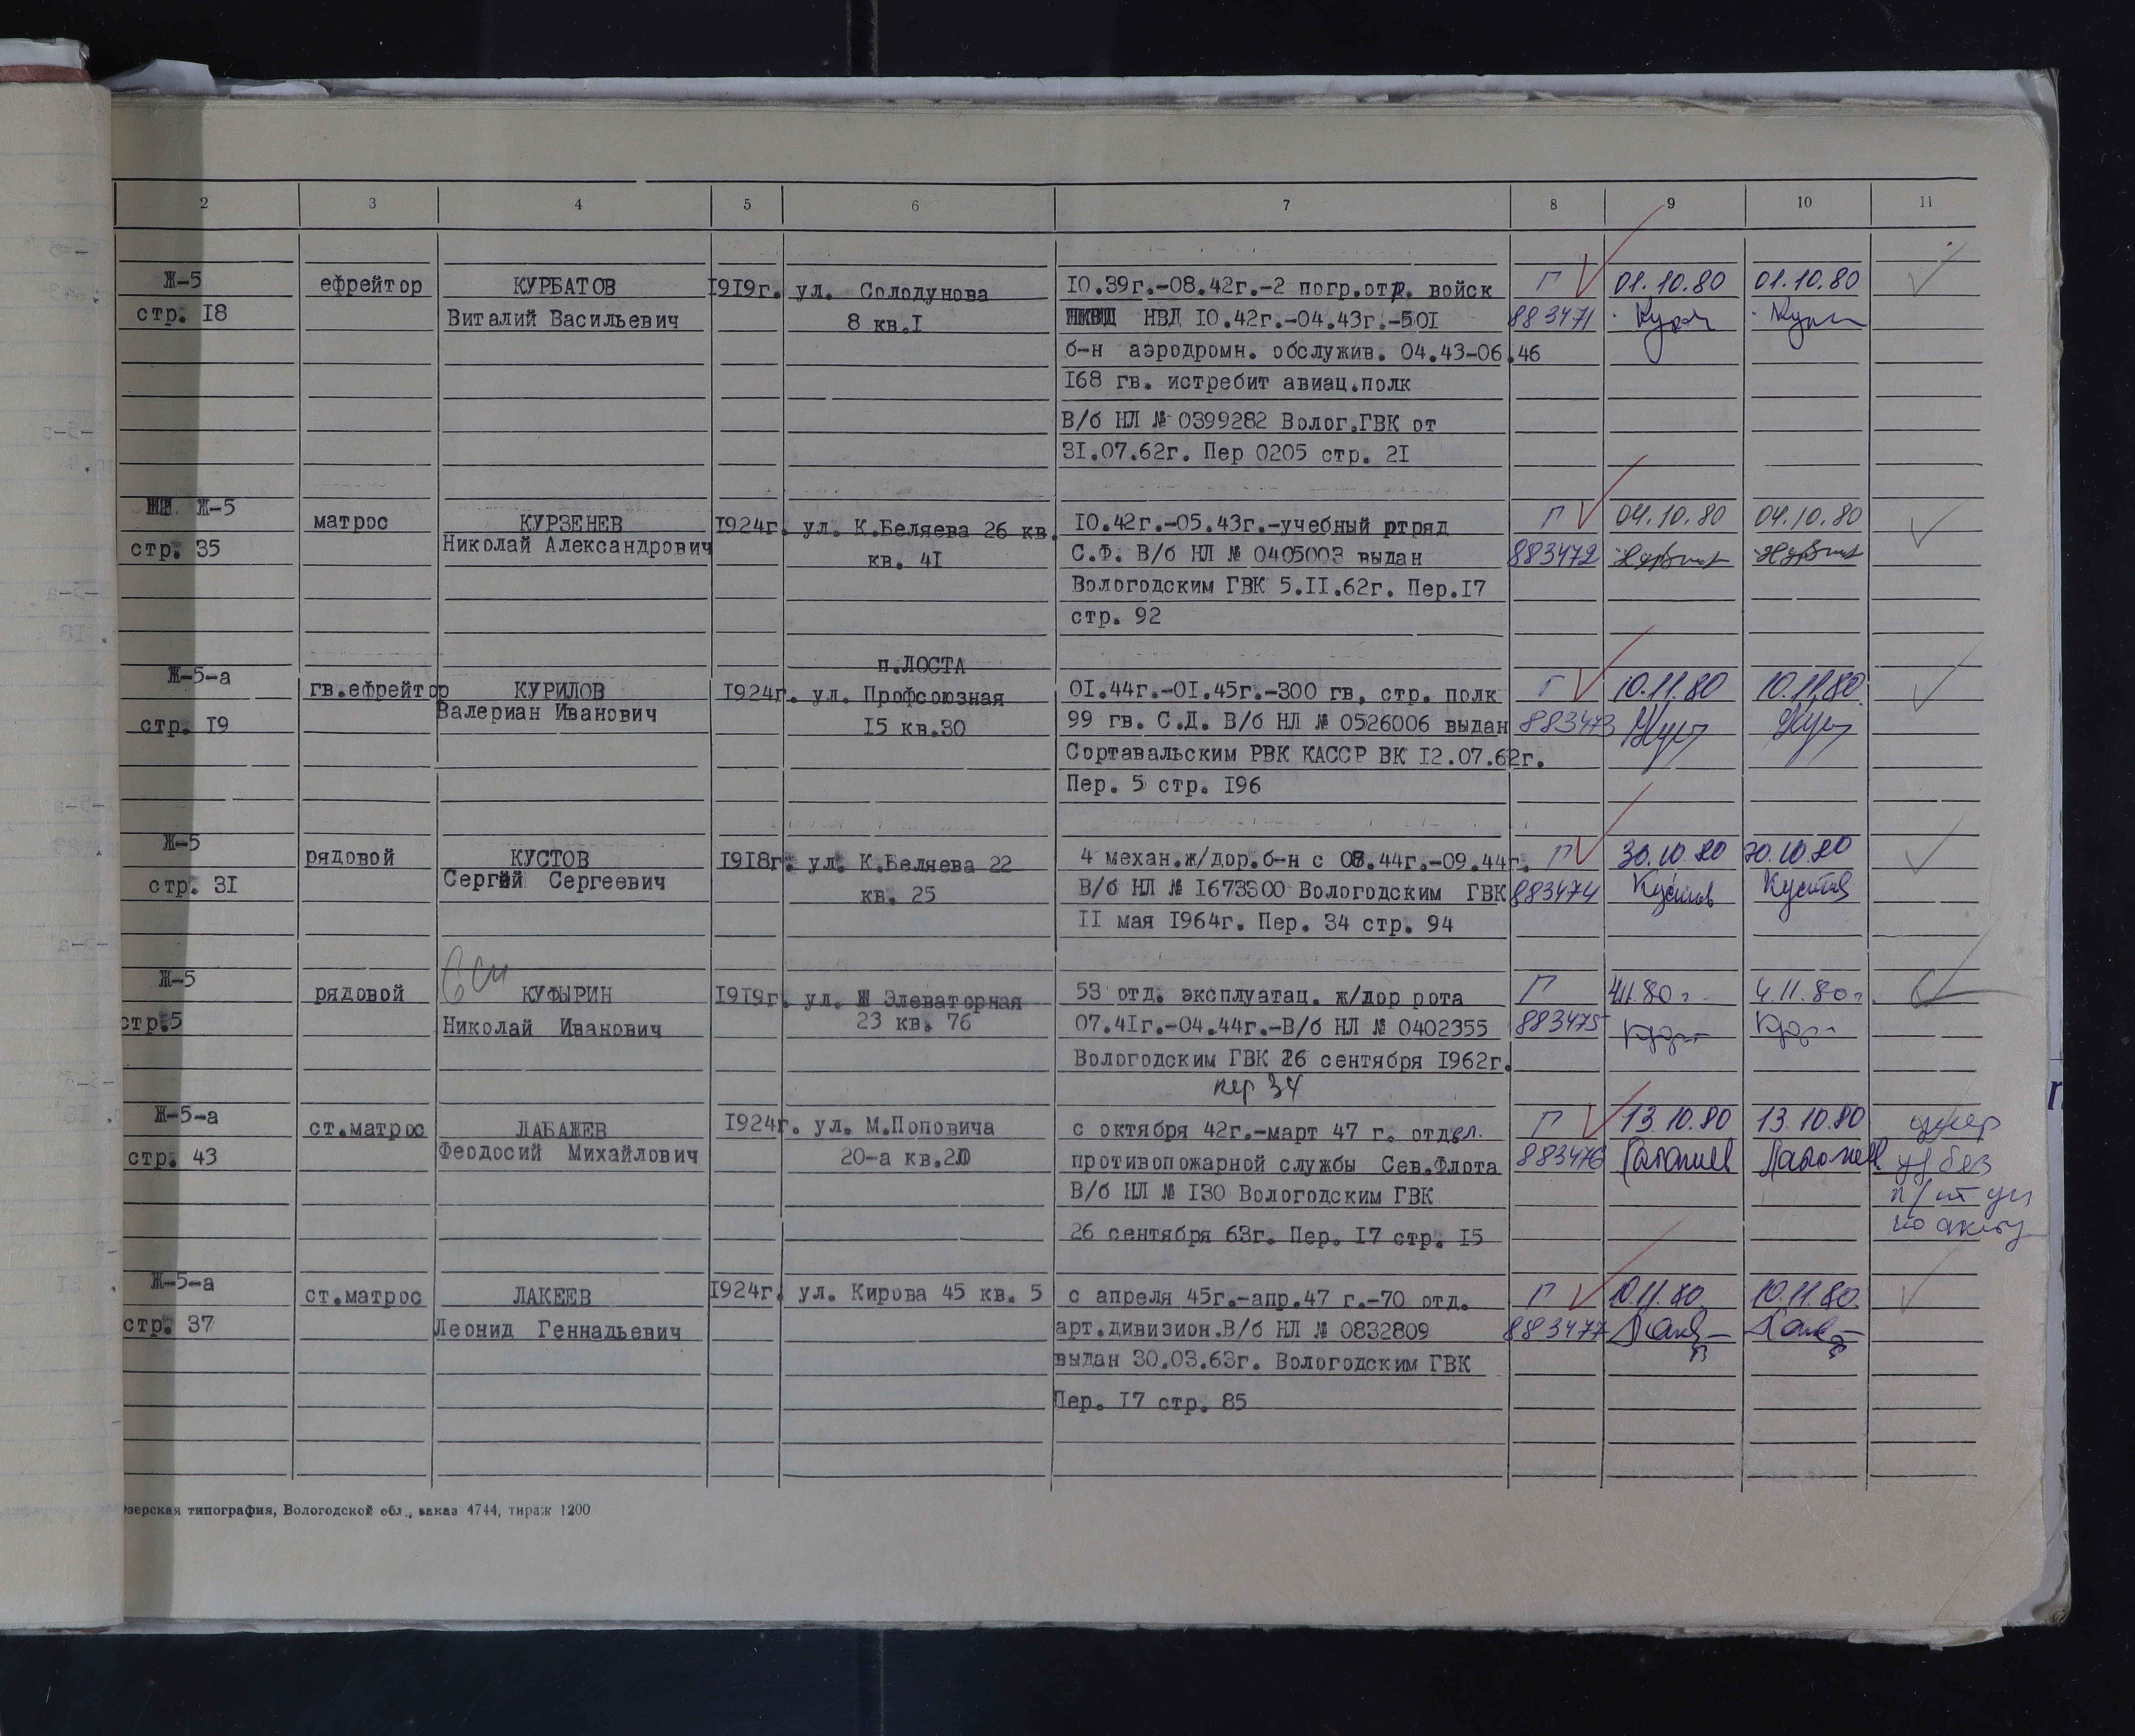 2 3 4 5 6 7 8 9 10 11
Ж-5 ефрейтор КУРБАТОВ 1919г. ул. Солодунова 10.39г.-08.42г.-2 погр.отр. войск Г 01.10.80 01.10.80
стр. 18 Виталий Васильевич 8 кв.1 НВД 10.42г.-04.43г.-501 883471
б-н аэродромн. обслужив. 04.43-06.46
168 гв. истребит авиац.полк
В/б НЛ № 0399282 Волог.ГВК от
31.07.62г. Пер 0205 стр. 21
Ж-5 матрос КУРЗЕНЕВ 1924г. ул. К.Беляева 26 кв. 10.42г.-05.43г.-учебный ртряд Г 04.10.80 04.10.80
стр. 35 Николай Александрович кв. 41 С.Ф. В/б НЛ № 0405003 выдан 883472
Вологодским ГВК 5.11.62г. Пер.17
стр. 92
п.ЛОСТА
Ж-5-а гв.ефрейтор КУРИЛОВ 1924г. ул. Профсоюзная 01.44г.-01.45г.-300 гв, стр. полк Г 10.11.80 10.11.80.
стр. 19 Валериан Иванович 15 кв.30 99 гв. С.Д. В/б НЛ № 0526006 выдан 883473
Сортавальским РВК КАССР ВК 12.07.62г.
Пер. 5 стр. 196
Ж-5 рядовой КУСТОВ 1918г. ул. К.Беляева 22 4 механ.ж/дор.б-н с 08.44г.-09.44г. Г 30.10.80 30.10.80
стр. 31 Сергей Сергеевич кв. 25 В/б НЛ № 1673300 Вологодским ГВК 883474 Кустов Кустов
11 мая 1964г. Пер. 34 стр. 94
Ж-5 рядовой КУФЫРИН 1919г. ул. Элеваторная 53 отд. эксплуатац. ж/дор рота Г 4.11.80г. 4.11.80г.
стр.5 Николай Иванович 23 кв. 76 07.41г.-04.44г.-В/б НЛ № 0402355 883475
Вологодским ГВК 26 сентября 1962г.
пер 34
Ж-5-а ст.матрос ЛАБАЖЕВ 1924г. ул. М.Поповича с октября 42г.-март 47 г. отдел. Г 13.10.80 13.10.80
стр. 43 Феодосий Михайлович 20-а кв.20 противопожарной службы Сев.Флота 883476 Лабажев Лабажев
В/б НЛ № 130 Вологодским ГВК
26 сентября 63г. Пер. 17 стр. 15 по акту
Ж-5-а ст.матрос ЛАКЕЕВ 1924г. ул. Кирова 45 кв. 5 с апреля 45г.-апр.47 г.-70 отд. Г 10.11.80. 10.11.80.
стр. 37 Леонид Геннадьевич арт.дивизион.В/б НЛ № 0832809 883477
выдан 30.03.63г. Вологодским ГВК
Пер. 17 стр. 85
зерская типография, Вологодской обл., заказ 4744, тираж 1200